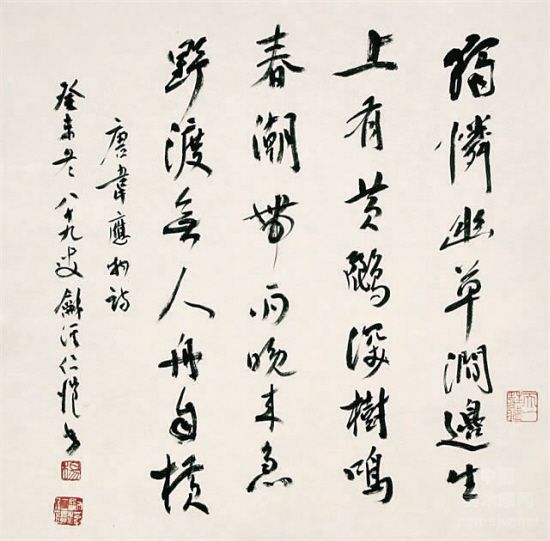 獨憐幽草澗邊生
上有黃鸝深樹鳴
春潮帶雨晚來急
野渡無人舟自橫
唐韋應物詩
癸未冬八十九叟龢溪仁愷書
楊